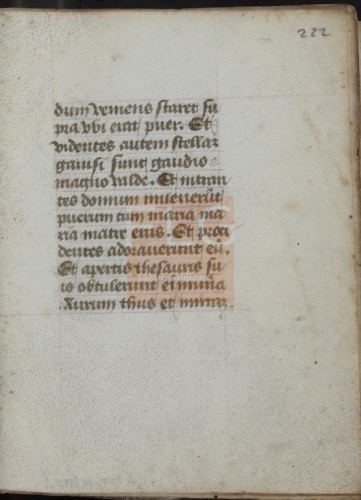 222
dum veniens staret su
pra vbi erat puer. Et
videntes autem stellaz
gauisi sunt gaudio
magno valde. Et intran
tes domum inuenerūt
puerum cum maria ma
ria matre eius. Et proci
dentes adorauerunt eū.
Et apertis thesauris su
is obtulerunt ei mun̄a
Aurum thus et mirraz.